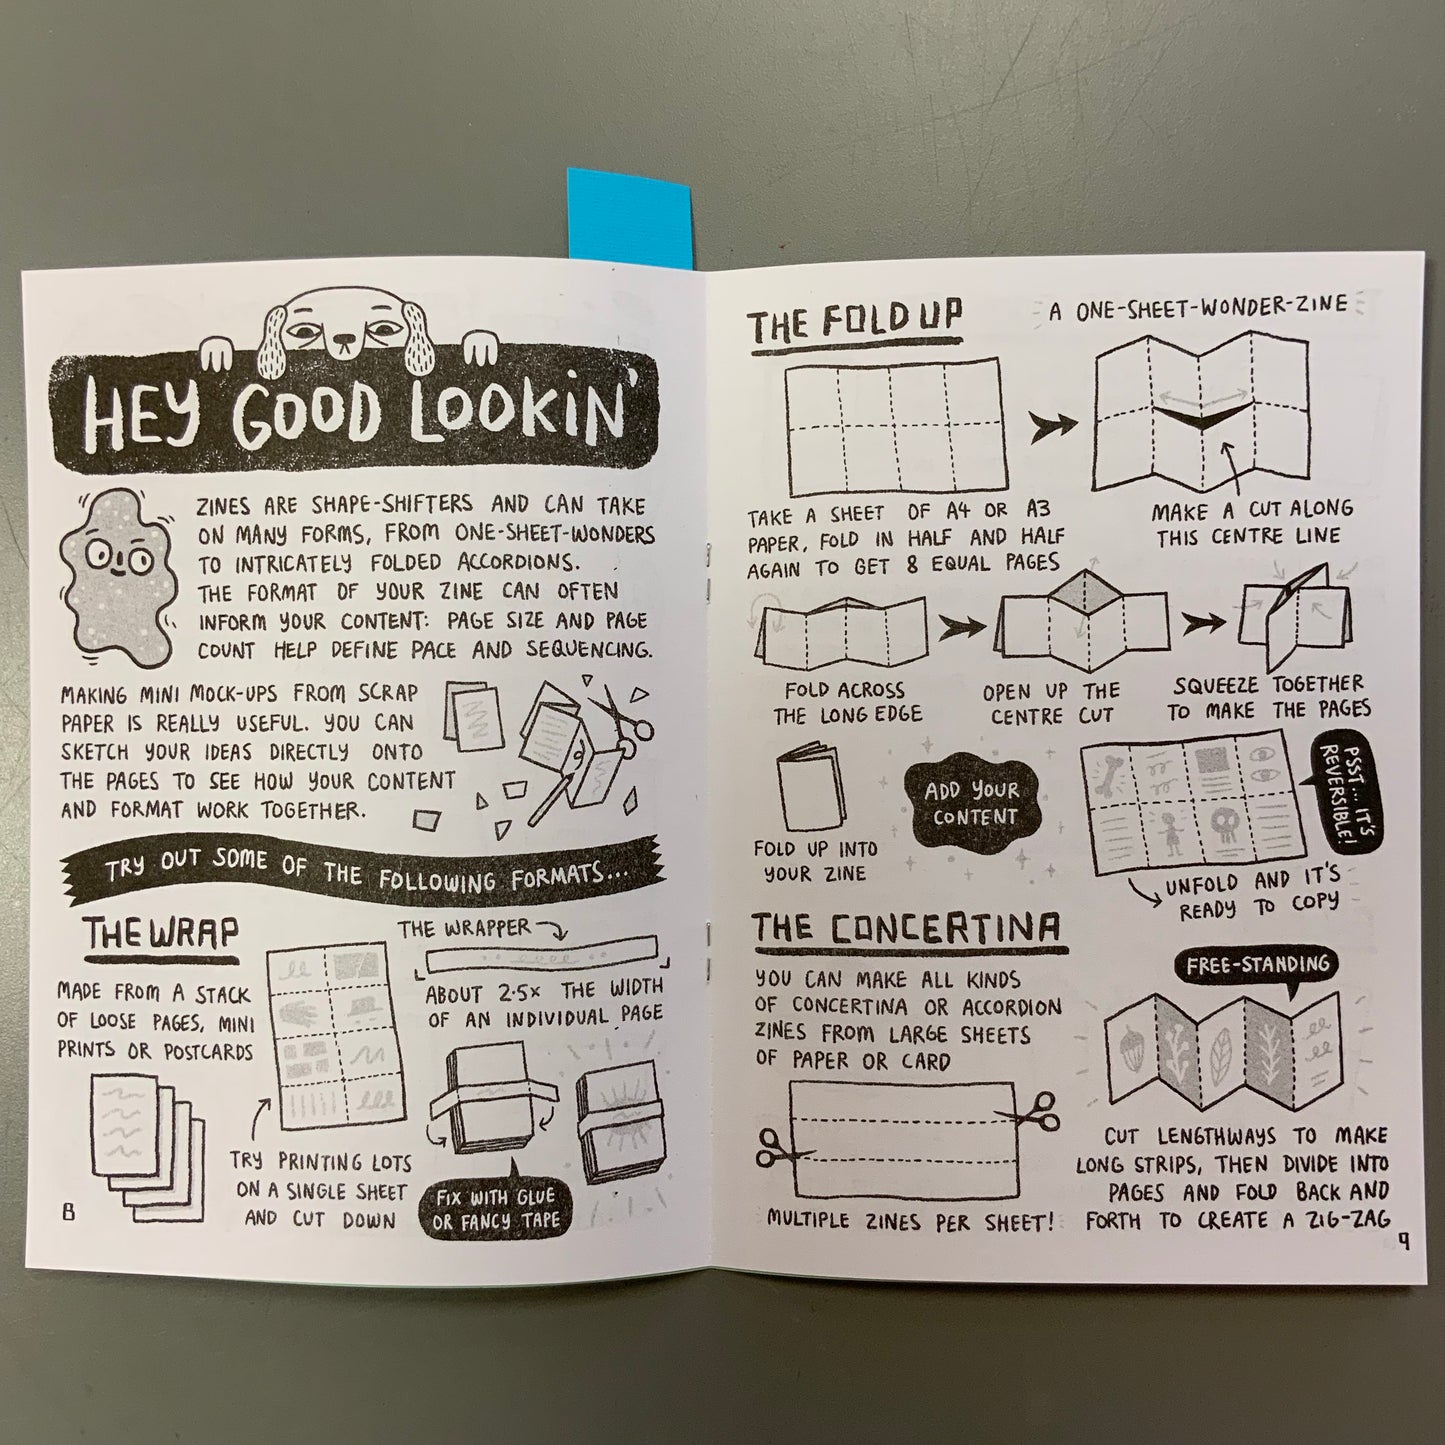 HEY GOOD LOOKIN'
ZINES ARE SHAPE-SHIFTERS AND CAN TAKE
ON MANY FORMS, FROM ONE-SHEET-WONDERS
TO INTRICATELY FOLDED ACCORDIONS.
THE FORMAT OF YOUR ZINE CAN OFTEN
INFORM YOUR CONTENT: PAGE SIZE AND PAGE
COUNT HELP DEFINE PACE AND SEQUENCING.
MAKING MINI MOCK-UPS FROM SCRAP
PAPER IS REALLY USEFUL. YOU CAN
SKETCH YOUR IDEAS DIRECTLY ONTO
THE PAGES TO SEE HOW YOUR CONTENT
AND FORMAT WORK TOGETHER.
TRY OUT SOME OF THE FOLLOWING FORMATS...
THE WRAP
MADE FROM A STACK
OF LOOSE PAGES, MINI
PRINTS OR POSTCARDS
TRY PRINTING LOTS
ON A SINGLE SHEET
AND CUT DOWN
THE WRAPPER
ABOUT 2.5x THE WIDTH
OF AN INDIVIDUAL PAGE
FIX WITH GLUE
OR FANCY TAPE
8
THE FOLD UP
A ONE-SHEET-WONDER-ZINE
TAKE A SHEET OF A4 OR A3
PAPER, FOLD IN HALF AND HALF
AGAIN TO GET 8 EQUAL PAGES
MAKE A CUT ALONG
THIS CENTRE LINE
FOLD ACROSS
THE LONG EDGE
OPEN UP THE
CENTRE CUT
SQUEEZE TOGETHER
TO MAKE THE PAGES
FOLD UP INTO
YOUR ZINE
ADD YOUR
CONTENT
PSST... IT'S
REVERSIBLE!
UNFOLD AND IT'S
READY TO COPY
THE CONCERTINA
YOU CAN MAKE ALL KINDS
OF CONCERTINA OR ACCORDION
ZINES FROM LARGE SHEETS
OF PAPER OR CARD
MULTIPLE ZINES PER SHEET!
FREE-STANDING
CUT LENGTHWAYS TO MAKE
LONG STRIPS, THEN DIVIDE INTO
PAGES AND FOLD BACK AND
FORTH TO CREATE A ZIG-ZAG
9